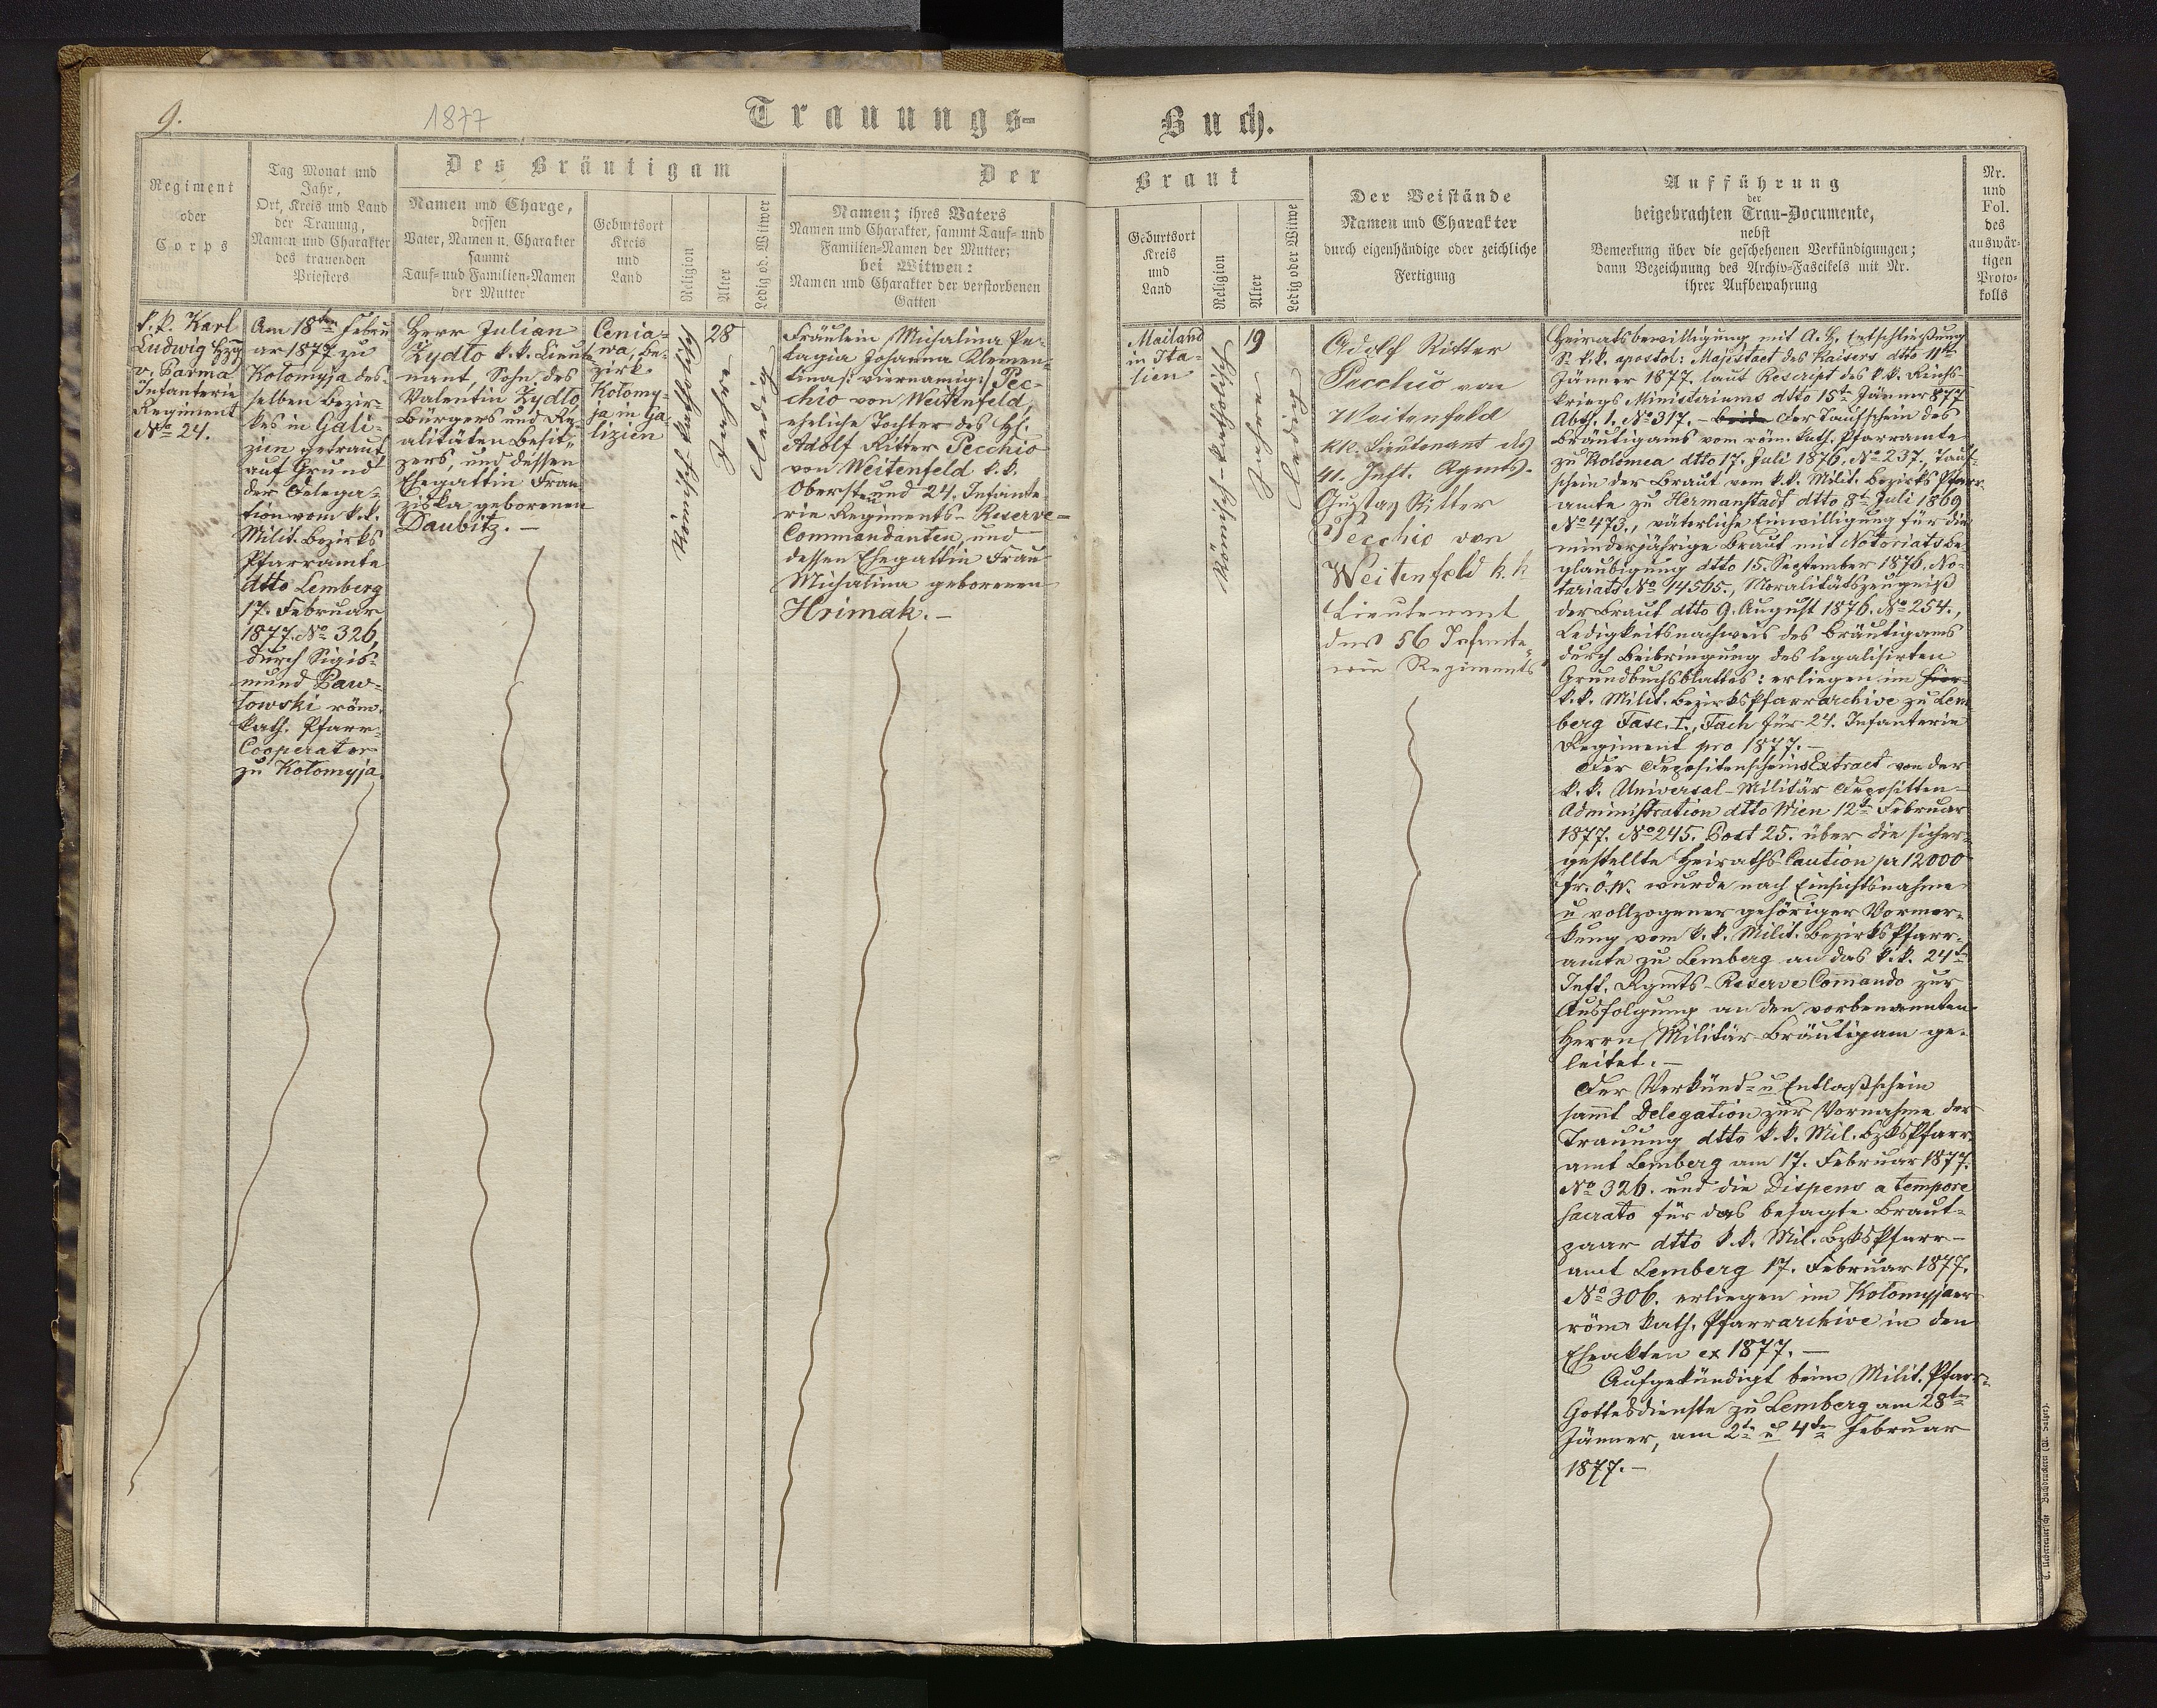 9.
1877
Trauungs-
Buch.
Regiment
oder
Corps
Tag Monat und
Jahr,
Ort, Kreis und Land
der Trauung,
Namen und Charakter
des trauenden
Priesters
Des Bräutigam
Namen und Charge,
dessen
Vater, Namen u. Charakter
sammt
Tauf- und Familien-Namen
der Mutter
Geburtsort
Kreis
und
Land
Religion
Alter
Ledig od. Witwer
Der
Braut
Namen; ihres Vaters
Namen und Charakter, sammt Tauf- und
Familien-Namen der Mutter;
bei Witwen:
Namen und Charakter der verstorbenen
Gatten
Geburtsort
Kreis
und
Land
Religion
Alter
Ledig oder Witwe
Der Beistände
Namen und Charakter
durch eigenhändige oder zeichliche
Fertigung
Aufführung
der
beigebrachten Trau-Documente,
nebst
Bemerkung über die geschehenen Verkündigungen;
dann Bezeichnung des Archiv-Fascikels mit Nr.
ihrer Aufbewahrung
Nr.
und
Fol.
des
auswär-
tigen
Proto-
kolls
k.k. Karl
Ludwig Hzg
v. Parma
Infanterie
Regiment
No 24.
Am 18ten Febru
ar 1877 zu
Kołomyja des-
selben Bezir-
kes in Gali-
zien getraut
auf Grund
der Delega-
tion vom k.k.
Milit. Bezirks
Pfarramte
dtto Lemberg
17. Februar
1877. No 326,
durch Sigis-
mund Paw-
łowski röm.
kath. Pfarr-
Cooperator
zu Kołomyja.
Herr Julian
Żydło k.k. Lieut
nant, Sohn des
Valentin Żydło
Bürgers und Re-
alitäten Besit-
zers, und dessen
Ehegattin Fran
ziska geborenen
Daubitz. –
Cenia-
wa, Be-
zirk
Kołomy-
ja in Ga-
lizien
Römisch-katholisch
28
Jahre
Ledig
Fräulein Michalina Pe-
lagia Johanna Klemen-
tina /: viernamig :/ Pec-
chio von Weitenfeld,
eheliche Tochter des H:
Adolf Ritter Pecchio
von Weitenfeld k.k.
Obersten und 24. Infante
rie Regiments-Reserve-
Commandanten, und
dessen Ehegattin Frau
Michalina geborenen
Hrimak. –
Mailand
in Ita-
lien
Römisch-katholisch
19
Jahre
Ledig
Adolf Ritter
Pecchio von
Weitenfeld
kk. Lieutenant des
41. Inft. Rgmts.
Gustav Ritter
Pecchio von
Weitenfeld k. k.
Lieutenant
des 56 Infante
rie Regiments
Heiratsbewilligung mit A. H. Entschließung
Sr k.k. apostol: Majestaet des Kaisers dtto 11ten
Jänner 1877. laut Rescript des k.k. Reichs-
kriegs Ministeriums dtto 15ten Jänner 877
Abth. 1. No 317. – Der Taufschein des
Bräutigams vom röm. kath. Pfarramte
zu Kolomea dtto 17. Juli 1876. No 237., Tauf-
schein der Braut vom k.k. Milit. Bezirks Pfarr-
amte zu Hermanstadt dtto 8ten Juli 1869
No 473., väterliche Einwilligung für die
minderjährige Braut mit Notariatsbe-
glaubigung dtto 15. September 1876. No-
tariats No 14565., Moralitätszeugniß
der Braut dtto 9. August 1876. No 254.,
Ledigkeitsnachweis des Bräutigams
durch Beibringung des legalisirten
Grundbuchsblattes: erliegen im
k.k. Milit. Bezirks Pfarrarchive zu Lem
berg Fasc. I., Fach für 24. Infanterie
Regiment pro 1877. –
Der Depositenscheins Extract von der
k.k. Universal-Militär Depositten-
Administration dtto Wien 12ten Februar
1877. No 245. Post 25. über die sicher-
gestellte Heiraths Caution pr 12000
fr. ö. W. wurde nach Einsichtsnahme
u vollzogener gehöriger Vormer-
kung vom k.k. Milit. Bezirks Pfarr-
amte zu Lemberg an das k.k. 24te
Inft. Rgmts-Reserve Comando zur
Ausfolgung an den vorbenannten
Herrn Militär-Bräutigam ge-
leitet. –
Der Verkünd- u Entlaßschein
sammt Delegation zur Vornahme der
Trauung dtto k.k. Mil. BzksPfarr-
amt Lemberg am 17. Februar 1877.
No 326. und die Dispens a tempore
sacrato für das besagte Braut-
paar dtto k.k. Mil. BzksPfarr-
amt Lemberg 17. Februar 1877.
No 306. erliegen im Kołomyjaer
röm. kath. Pfarrarchive in den
Eheakten ex 1877. –
Aufgekündigt beim Milit. Pfarr-
Gottesdienste zu Lemberg am 28ten
Jänner, am 2ten u 4ten Februar
1877. –